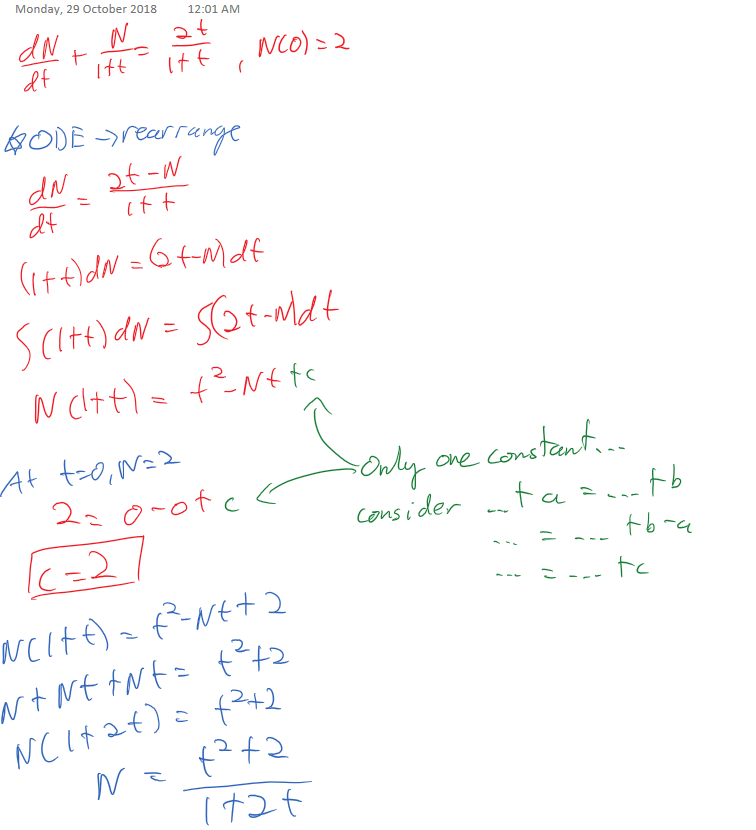 Monday, 29 October 2018 12:01 AM
dN/dt + N/1+t = 2t/1+t , N(0) = 2
ODE → rearrange
dN/dt = 2t-N/1+t
(1+t)dN = (2t-N)dt
∫(1+t)dN = ∫(2t-N)dt
N(1+t) = t²-Nt+c
At t=0, N=2
2 = 0-0+c
c=2
Only one constant...
consider ...+a = ...+b
... = ... +b-a
... = ... +c
N(1+t) = t²-Nt+2
N+Nt+Nt = t²+2
N(1+2t) = t²+2
N = t²+2/1+2t